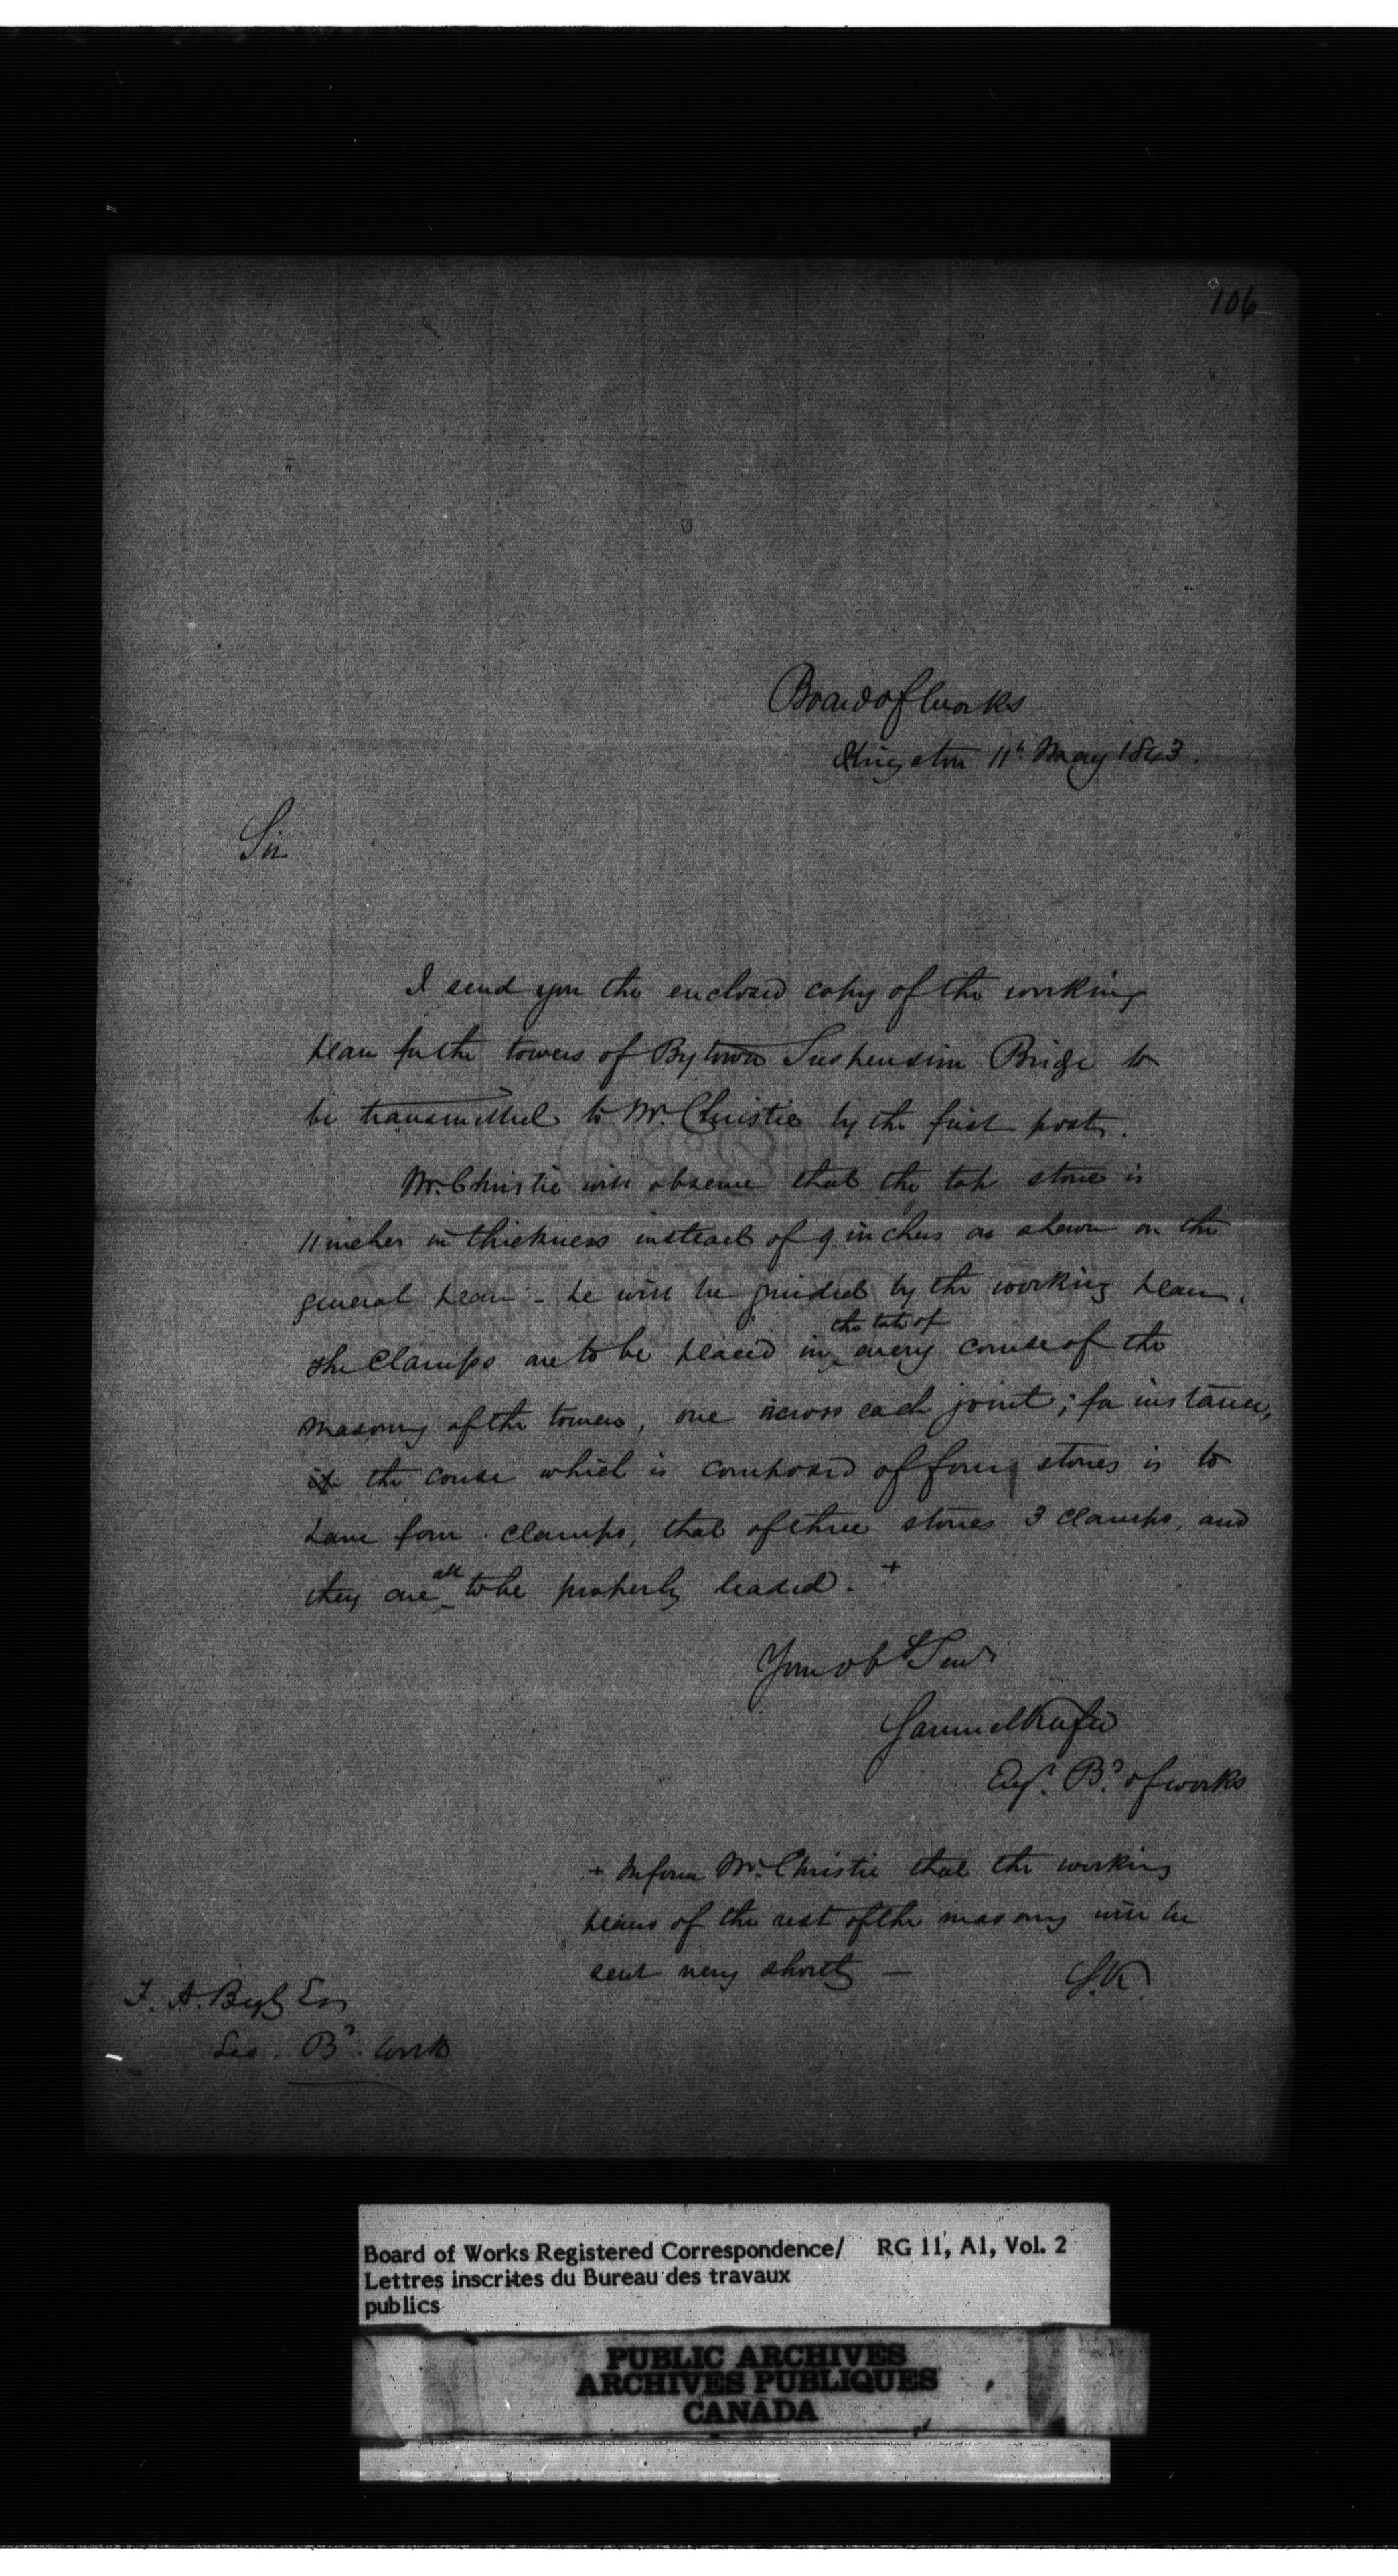 106
Board of Works
Kingston 11th May 1843.
Sir
I send you the enclosed copy of the working
plan for the towers of Bytown Suspension Bridge to
be transmitted to Mr. Christie by the first post.
Mr. Christie will observe that the top stone is
11 inches in thickness instead of 9 inches as shewn on the
general plan - he will be guided by the working plan.
the top of
The Clamps are to be placed in every course of the
masonry of the towers, one across each joint; for instance,
the course which is composed of four stones is to
have four clamps, that of three stones 3 clamps, and
all
they are to be properly leaded. +
Your obt Servt
Samuel Keefer
Engr. Bd. of works
+ Inform Mr. Christie that the working
plans of the rest of the masonry will be
sent very shortly —
S.K.
F. A. Begly Esq
Sec. Bd. Works
Board of Works Registered Correspondence/ RG 11, A1, Vol. 2
Lettres inscrites du Bureau des travaux
publics
PUBLIC ARCHIVES
ARCHIVES PUBLIQUES
CANADA